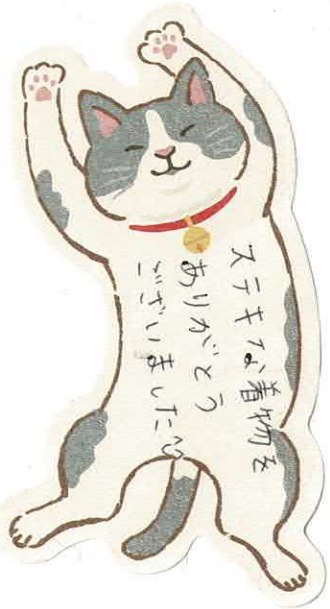 ステキな着物を
ありがとう
ございました♡